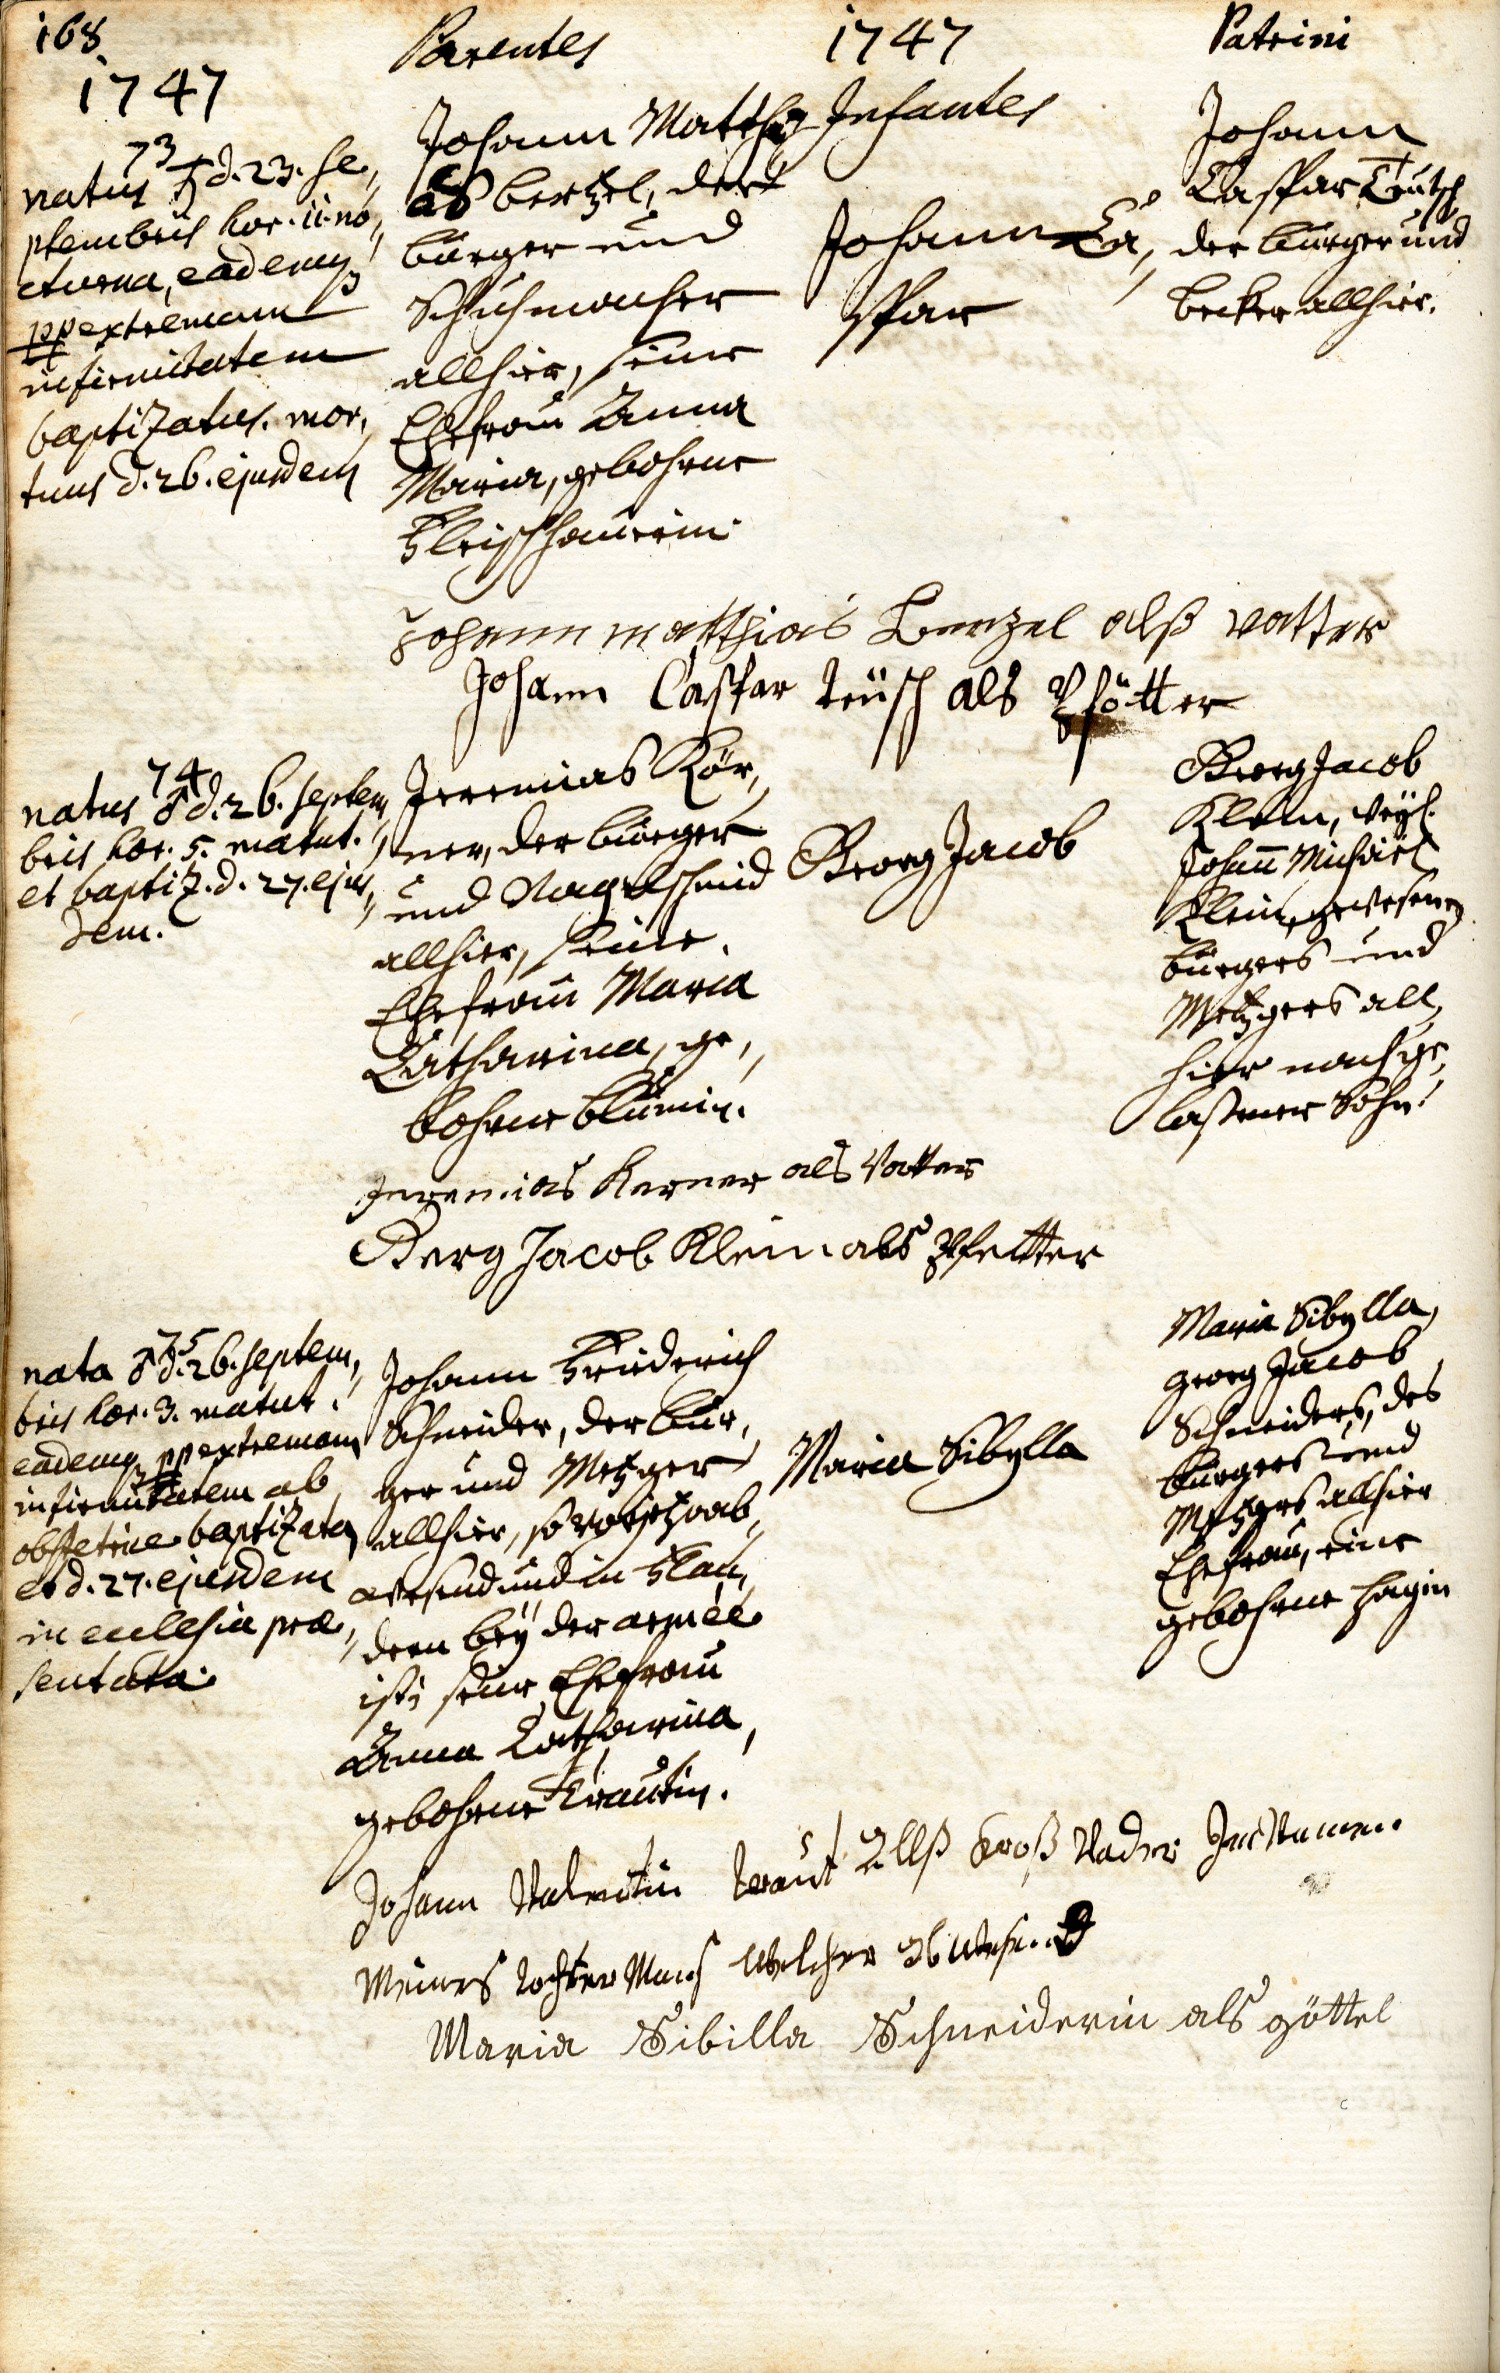 168
1747
Parentes
1747
Infantes
Patrini
73
natus ♄ d. 23. Se,
ptembris hor. 11. no,
cturna, eadem
pp extremam
infirmitatem
baptizatus. mor,
tuus d. 26. ejusdem
Johann Matthi
as Bertzel, der
burger und
Schuhmacher
allhier, seine
Ehefrau Anna
Maria, gebohrne
Fleischhauerin.
Johann Ca,
spar
Johann
Caspar Teutsch
der burger und
becker allhier.
Johann matthias Berzel alß vatter
Johann Caspar teüsch als Pfötter
74
natus ♂ d. 26. Septem,
bris hor. 5. matut.
et baptiz. d. 27. ejus,
dem.
Jeremias Kör,
ner, der burger
und Nagelschmid
allhier, seine
Ehefrau Maria
Catharina, ge,
bohrne Blumin.
Georg Jacob
Georg Jacob
Klein, weyl.
Johann Michael
Klein, gewesenen
burgers und
Metzgers all,
hier nachge,
laßener Sohn.
Jeremias Kerner als Vatter
Gerg Jacob Klein als Pfetter
75
nata ♂ d. 26. Septem,
bris hor. 3. matut.
eadem pp extremam
infirmitatem ab
obstetrice baptizata
et d. 27. ejusdem
in ecclesia præ,
sentata.
Johann Friederich
Schneider, der bur,
ger und Metzger
allhier, so vorjetzo ab,
wesend und in Flan,
dern bey der armée
ist, seine Ehefrau
Anna Catharina,
gebohrne Trautin.
Maria Sibylla
Maria Sibylla,
Georg Jacob
Schneiders, des
burgers und
Metzgers allhier
Ehefrau, eine
gebohrne Hagin
Johann Valentin traut Allß Groß Vader Im Namen
Meines tochter Mans Welcher Abwesend
Maria Sibilla Schneiderin als göttel